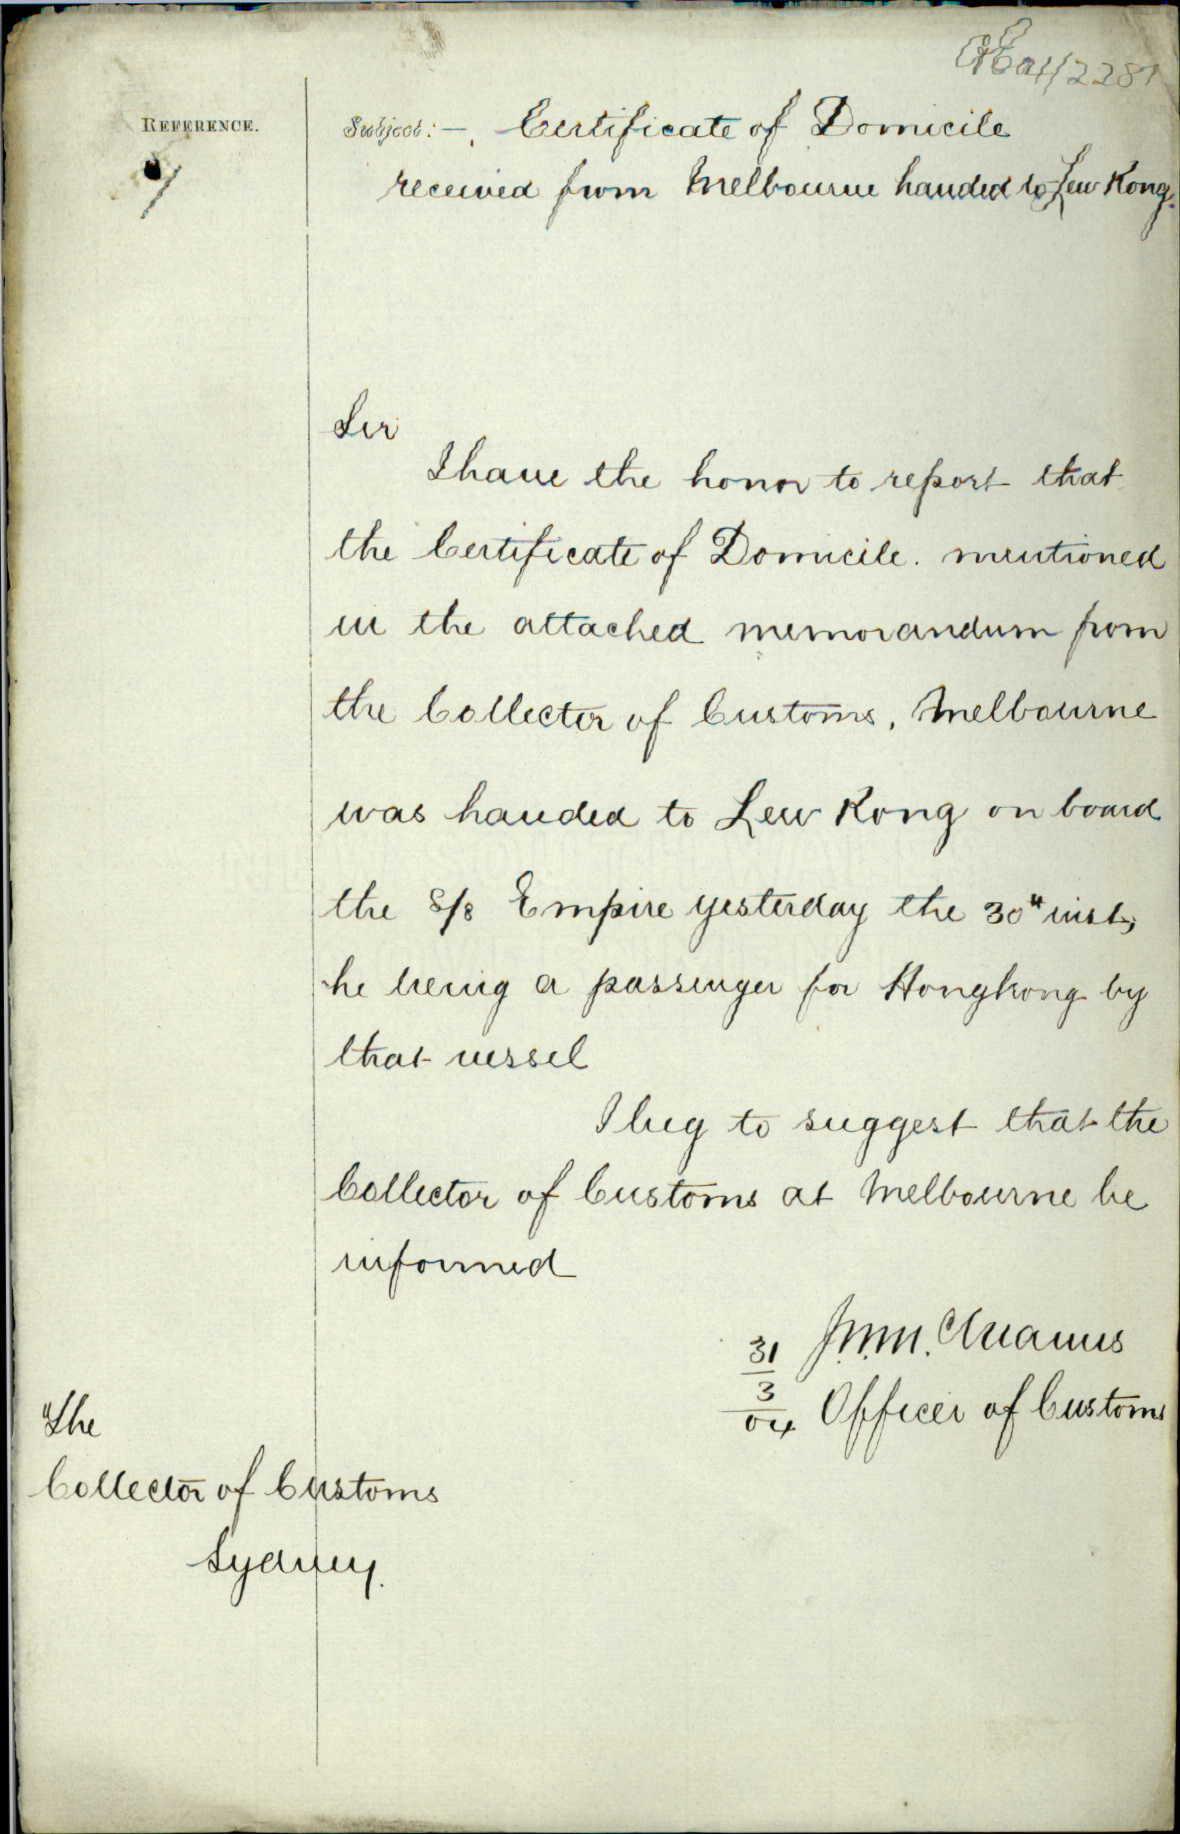 REFERENCE.
Subject:— Certificate of Domicile
received from Melbourne handed to Lew Kong.
Sir
I have the honor to report that
the Certificate of Domicile. mentioned
in the attached memorandum from
the Collector of Customs, Melbourne
was handed to Lew Kong on board
the S/S Empire yesterday the 30th inst,
he being a passenger for Hongkong by
that vessel
I beg to suggest that the
Collector of Customs at Melbourne be
informed
31
3
04
Officer of Customs
The
Collector of Customs
Sydney.